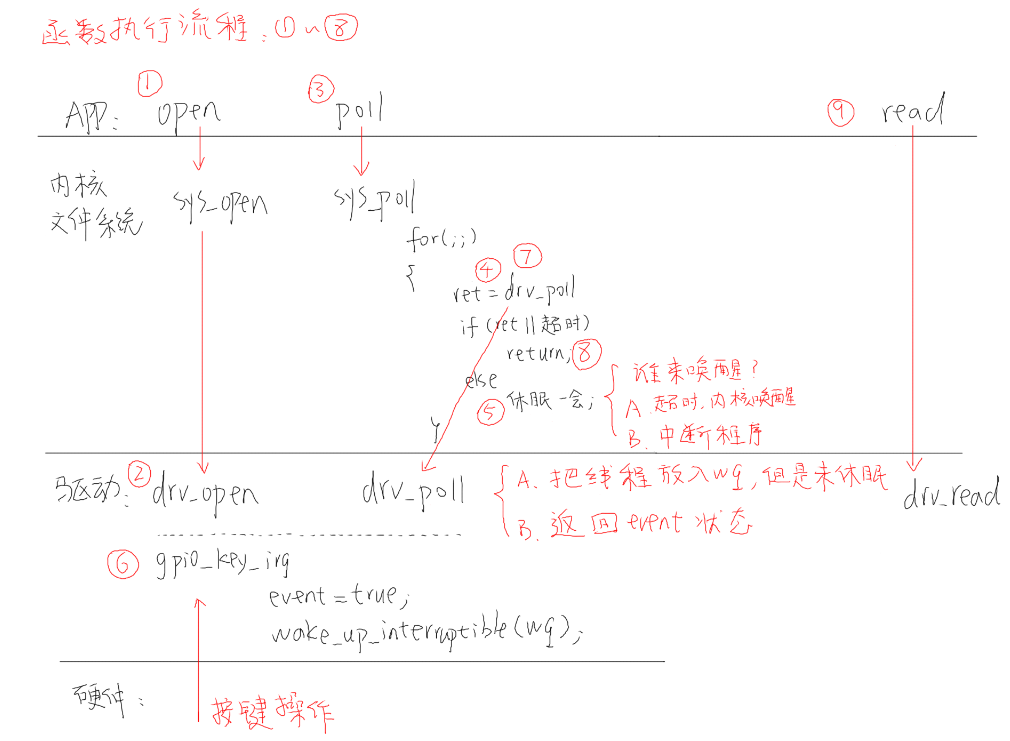 函数执行流程:①~⑧
① ③
APP: open poll ⑨ read
内核
文件系统 sys_open sys_poll
for(;;)
{ ④ ⑦
ret = drv_poll
if (ret || 超时)
return; ⑧
else
⑤ 休眠一会;
谁来唤醒?
A. 超时,内核唤醒
B. 中断程序
驱动: ② drv_open drv_poll drv_read
A. 把线程放入wq,但是未休眠
B. 返回event状态
⑥ gpio_key_irq
event = true;
wake_up_interruptible(wq);
硬件:
按键操作